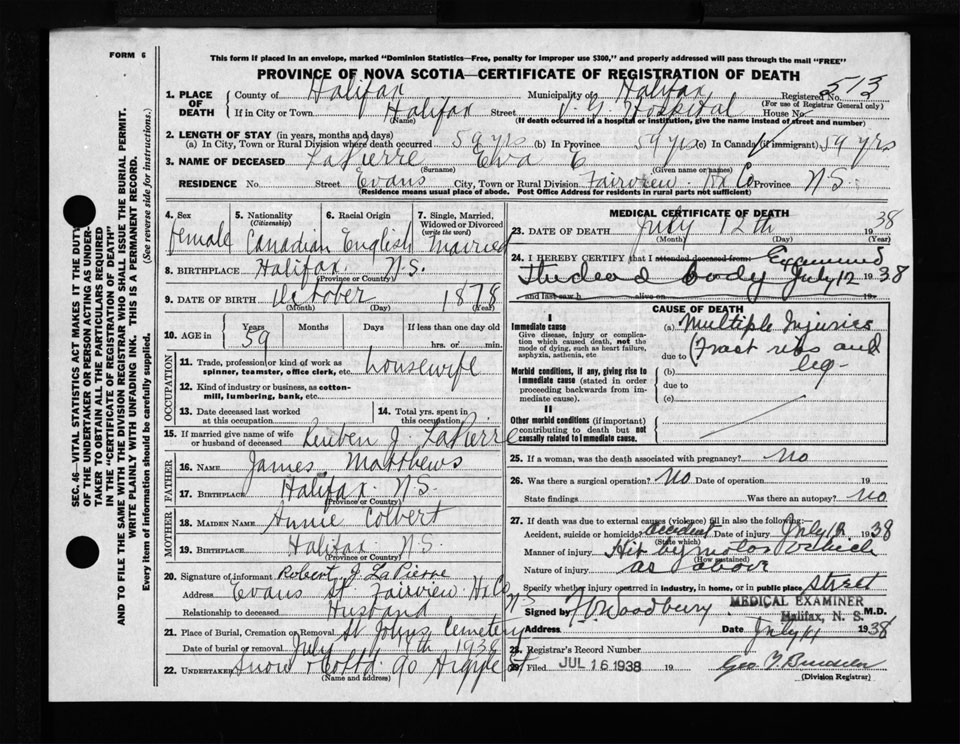 FORM 6
This form if placed in an envelope, marked "Dominion Statistics—Free, penalty for improper use $300," and properly addressed will pass through the mail "FREE"
PROVINCE OF NOVA SCOTIA—CERTIFICATE OF REGISTRATION OF DEATH
1. PLACE OF DEATH County of Halifax Municipality of Halifax Registered No. 513
(For use of Registrar General only)
If in City or Town Halifax Street V. G. Hospital House No.
(Name) (If death occurred in a hospital or institution, give the name instead of street and number)
2. LENGTH OF STAY (in years, months and days)
(a) In City, Town or Rural Division where death occurred 59 yrs (b) In Province 59 yrs (c) In Canada (if immigrant) 59 yrs
3. NAME OF DECEASED LaPierre Eva C
(Surname) (Given name or names)
RESIDENCE No. Street Evans City, Town or Rural Division Fairview Hx Co Province N.S.
(Residence means usual place of abode. Post Office Address for residents in rural parts not sufficient)
SEC. 46—VITAL STATISTICS ACT MAKES IT THE DUTY
OF THE UNDERTAKER OR PERSON ACTING AS UNDER-
TAKER TO OBTAIN ALL THE PARTICULARS REQUIRED
IN THE "CERTIFICATE OF REGISTRATION OF DEATH"
AND TO FILE THE SAME WITH THE DIVISION REGISTRAR WHO SHALL ISSUE THE BURIAL PERMIT.
WRITE PLAINLY WITH UNFADING INK. THIS IS A PERMANENT RECORD.
Every item of information should be carefully supplied. (See reverse side for instructions.)
4. Sex Female
5. Nationality (Citizenship) Canadian
6. Racial Origin English
7. Single, Married, Widowed or Divorced (write the word) Married
8. BIRTHPLACE Halifax N.S.
(Province or Country)
9. DATE OF BIRTH October 1878
(Month) (Day) (Year)
10. AGE in Years 59 Months Days If less than one day old hrs. or min.
OCCUPATION
11. Trade, profession or kind of work as spinner, teamster, office clerk, etc. housewife
12. Kind of industry or business, as cotton-mill, lumbering, bank, etc.
13. Date deceased last worked at this occupation
14. Total yrs. spent in this occupation
15. If married give name of wife or husband of deceased Reuben J. LaPierre
FATHER
16. NAME James Matthews
17. BIRTHPLACE Halifax N.S.
(Province or Country)
MOTHER
18. MAIDEN NAME Annie Colbert
19. BIRTHPLACE Halifax N.S.
(Province or Country)
20. Signature of informant Robert J. LaPierre
Address Evans St. Fairview Hx Co N.S
Relationship to deceased Husband
21. Place of Burial, Cremation or Removal St Johns Cemetery
Date of burial or removal July 1938
22. UNDERTAKER Snow & Co Ltd 90 Argyle St
(Name and address)
MEDICAL CERTIFICATE OF DEATH
23. DATE OF DEATH July 12th 1938
(Month) (Day) (Year)
24. I HEREBY CERTIFY that I attended deceased from: Examined
the dead body July 12 1938
and last saw h alive on 19
CAUSE OF DEATH
I
Immediate cause
Give disease, injury or complication which caused death, not the mode of dying, such as heart failure, asphyxia, asthenia, etc
(a) Multiple Injuries
due to (Fract ribs and leg
Morbid conditions, if any, giving rise to immediate cause (stated in order proceeding backwards from immediate cause).
(b)
due to
(c)
II
Other morbid conditions (if important) contributing to death but not causally related to immediate cause.
25. If a woman, was the death associated with pregnancy? no
26. Was there a surgical operation? No Date of operation 19
State findings Was there an autopsy? no
27. If death was due to external causes (violence) fill in also the following:—
Accident, suicide or homicide? accident Date of injury July 1938
(State which)
Manner of injury Hit by motor vehicle
(How sustained)
Nature of injury as above
Specify whether injury occurred in industry, in home, or in public place street
Signed by Woodbury M.D.
MEDICAL EXAMINER
Halifax, N. S.
Address Date July 11 1938
28. Registrar's Record Number
29. Filed JUL 16 1938 19
(Division Registrar)